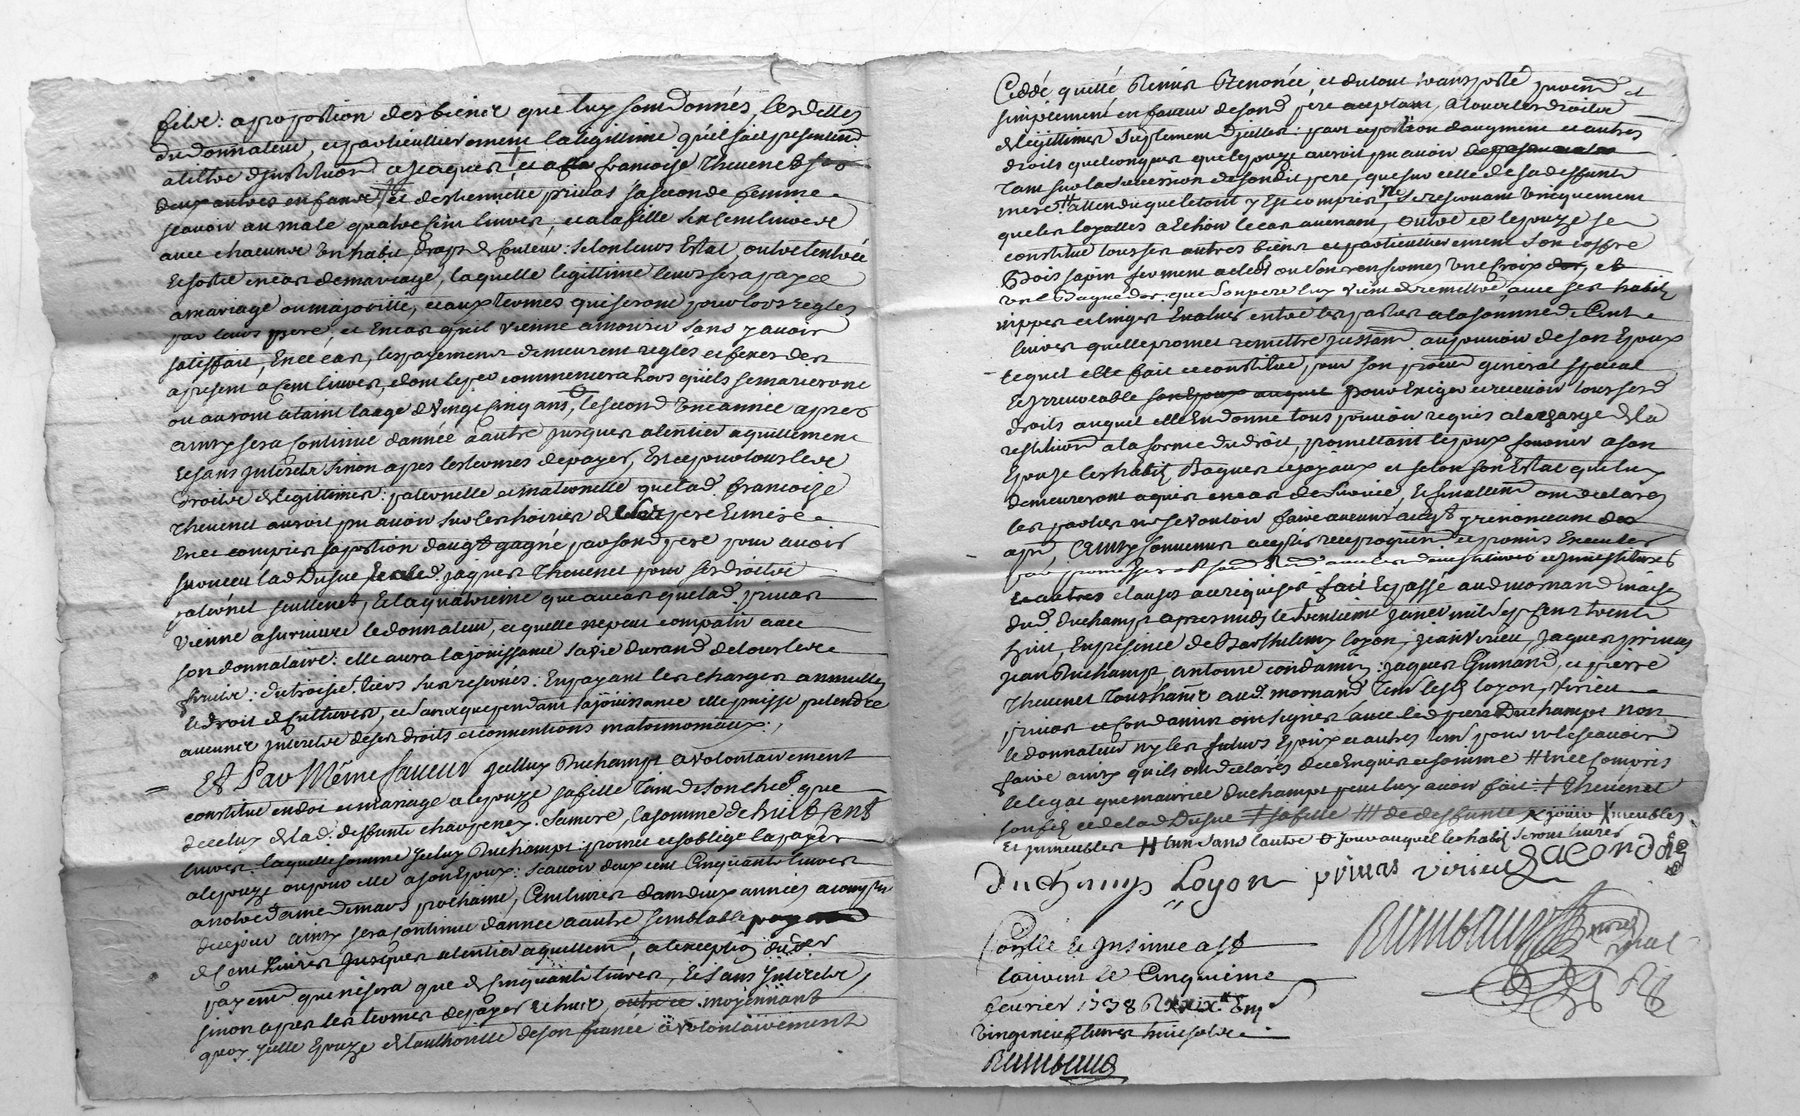 filz: a proportion des biens que luy sont donnés, lesdelles
du donnateur, et particullierement la legittime qu'il soit presentem
a tiltre djnstitution a Jaques et a françoise Thevenet ses
deux autres enfans et destiennette privas sa seconde femme
scavoir au male quatre cent livres, et a la fille six cent livres
avec chacune un habit draps de couleur: selon leurs Estat, outre l'entrée
Et sortie en cas de mariage, laquelle legittime leur sera payée
a mariage ou majorité, et aux termes qui seront pour lors reglés
par leurs pere, et En cas qu'il vienne a mourir sans y avoir
satisfait, En ce cas, les payements demeurent reglés et fixés des
a present a cent livres, dont le per commencera lors qu'ils se marieront
ou auront ataint laage de vingt cinq ans, le second une année apres
ainsy sera continué d'année a autre jusques a l'entier aquittement
Et sans jnterets sinon apres les termes de payer, Et ce pour tous les
droits de legittimes: paternelle et maternelle que lad. françoise
Thevenet auroit pu avoir sur les hoiries de ses pere Et mere
En ce compris sa portion d'augt gagné par sond pere pour avoir
survecu lad Dusue Et led. jaques Thevenet pour ses droits
paternel seullemt, Et la quatrieme que au cas que lad: privas
vienne a survivre le donnateur, et quelle ne peut compatir avec
son donnataire: elle aura la jouissance sa vie durand de tous les
fruits: du troisie. tiers sus reservés: En payant les charges annuelles
le droit de cultures, et sans que pendant sa jouissance elle puisse pretendre
aucuns jnterets de ses droits et conventions matrimoniaux:,
Et Par Même faveur jcelluy Duchamps a volontairement
constitué en dot et mariage a lepouze sa fille Tant de son chef que
de celuy de lad: deffunte chavaney: sa mere, la somme de huit cent
livres laquelle somme jceluy Duchamps: promet et soblige la payer
a lepouze ou pour elle a son Epoux: scavoir deux cent cinquante livres
a notre dame de mars prochaine, cent livres dans deux années a compter
de ce jour ainsy sera continué d'année a autre semblable pay
de cent livres jusques a l'entier aquittemt, a l'exception du der
payemt que ne sera que de cinquante livres, Et sans jnterets
sinon apres les termes de payer echus, outre ce moyennant
quoy jcelle Epouze de l'authorité de son fiancé a volontairement
Cedé quitté Remis Renoncé, et du tout transporté purem et
simplement en faveur de sond pere acceptant, a tous les droits
de legittimes supplement djcelles: part et portion d'augment et autres
droits quelconques que lepouze auroit pu avoir
tant sur la succession de son dit pere, que sur celle de sa deffunte
mere attendu que le tout y Est compris, ne se reservant uniquement
que les loyalles a echoir le cas avenant, outre ce lepouze se
constitue tous ses autres biens et particullierement son coffre
Bois sapin fermant a clefs ou sont renfermes une croix dor, et
une Bague dor que son pere luy vient de remettre, avec ses habits
nippes et linges Evalués entre les parties a la somme de Cent
livres quelle promet remettre jncessamt. au pouvoir de son Epoux
lequel elle fait et constitue, pour son procur general special
Et jrrevocable son Epoux auquel pour Exiger et recevoir tous sesd
droits auquel elle En donne tous pouvoirs requis a la charge de la
restitution a la forme du droit, promettant lepoux fournir a son
Epouze les habits Bagues et joyaux et selon son Estat que luy
demeureront aquis en cas de survie, Et finallemt ont declarés
les parties ne se vouloir faire aucuns augt y renonceant des
apnt, Ainsy convenu accepté reciproquemt et promis Executer
par promesses et
Et autres clauses au requises fait Et passé aud mornand maison
dud Duchamps apres midy le trentieme janvier mil sept cens trente
huit, En presence de Barthelemy loyon, jean virieu, jaques privas
jean Duchamps, antoine condamin: jaques Guinand, et pierre
Thevenet tous hant aud mornand Tem lesd loyon, virieu
privas et Condamin ont signés avec led pere Duchamps non
le donnateur ny les futurs Epoux et autres tem pour ne le scavoir
faire ainsy quils ont declarés de ce Enquis et somme # En ce compris
le legat que maurice Duchamps peut luy avoir fait: + Thevenet
son fils et de lad Dusue ‡ sa fille /// de deffunte x jouir X meubles
Et jmmeubles H tem sans l'autre pour auquel les habits seront livrés
Duchamps Loyon privas virieu A Condamin
Rimbaud
Con.lle & jnsinué a St
laurent le cinquieme
fevrier 1738 R
vingt neuf livres huit sols
Rimbaud